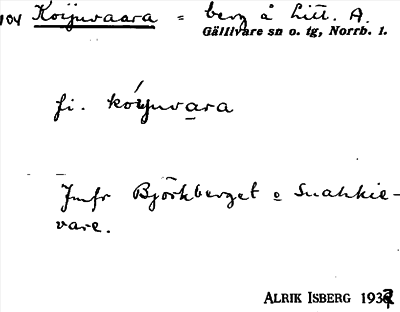 104 Koijuvaara = berg å Litt. A.
Gällivare sn o. tg, Norrb. l.
fi. koijuvara
Jmfr Björkberget o Snahkie-
vare.
ALRIK ISBERG 1932